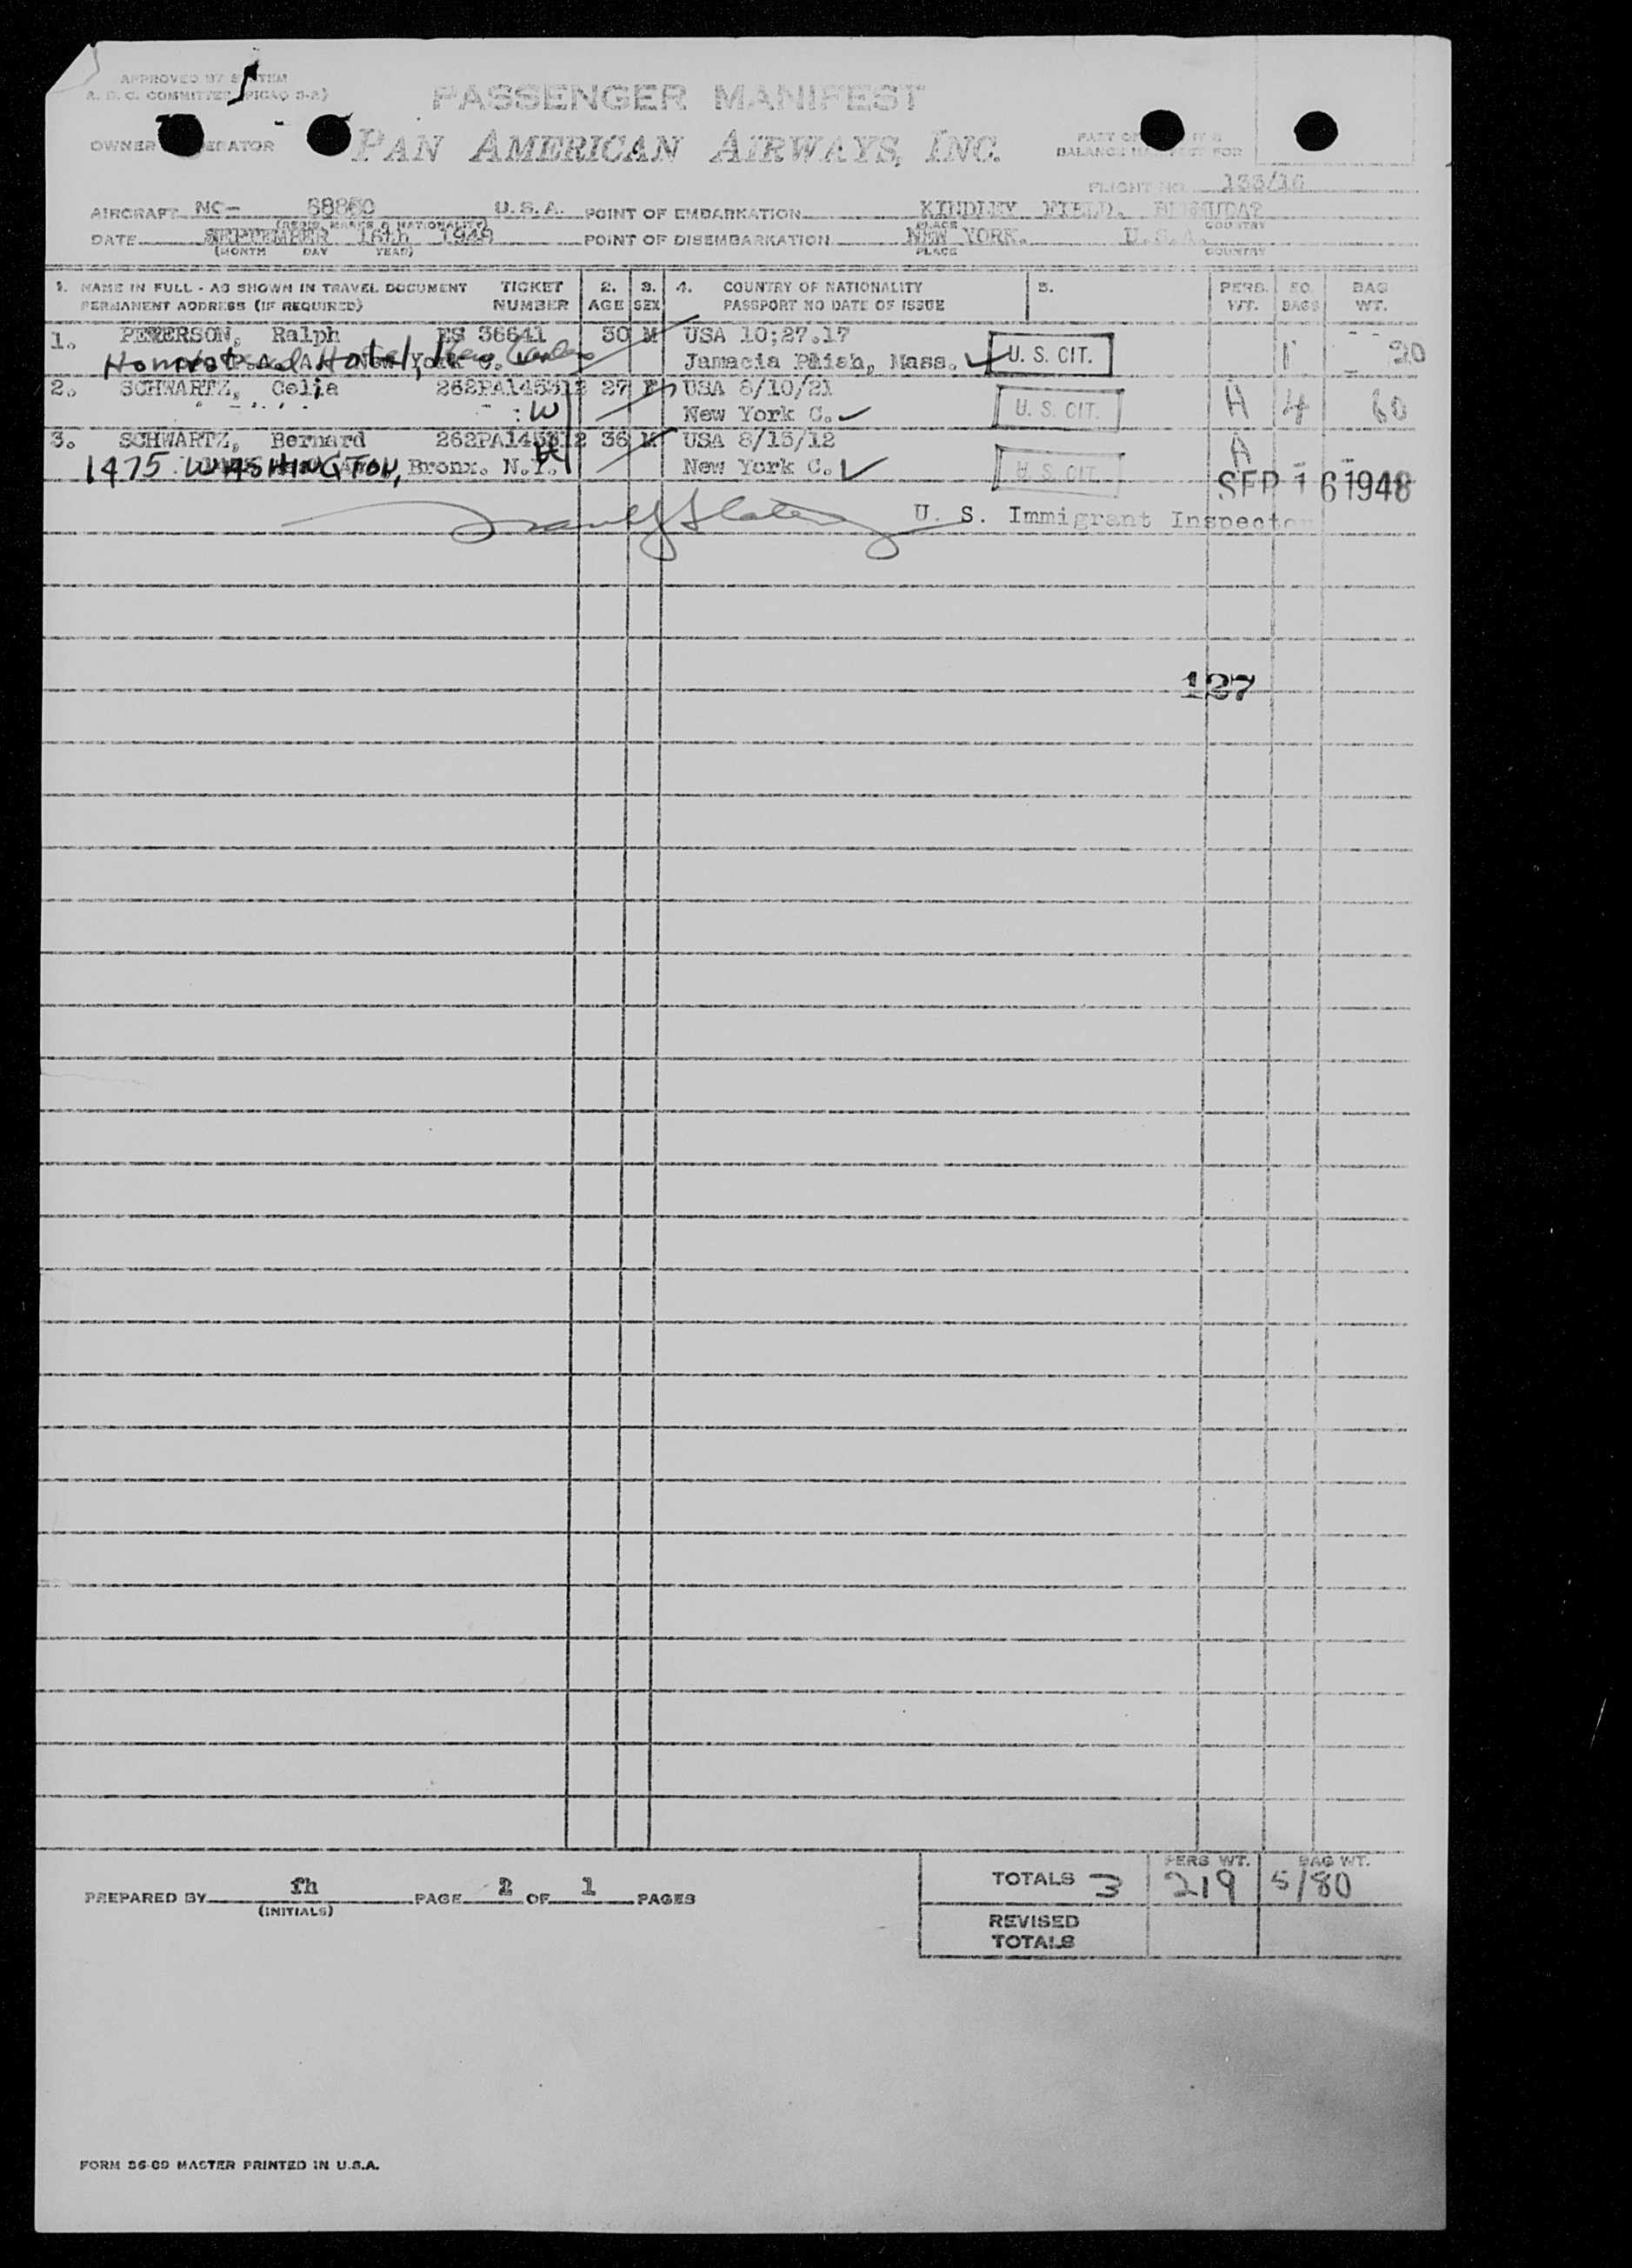 APPROVED BY SYSTEM
A. D. C. COMMITTEE (PICAO 3-2)
PASSENGER MANIFEST
OWNER ERATOR PAN AMERICAN AIRWAYS, INC. PART OF
BALANCE FOR
FLIGHT NO. 133/16
AIRCRAFT NC- 88860 U.S.A. POINT OF EMBARKATION KINDLEY FIELD. BERMUDA?
(REGIS. MARKS & NATIONALITY) PLACE COUNTRY
DATE SEPTEMBER 16th 1948 POINT OF DISEMBARKATION NEW YORK. U.S.A.
(MONTH DAY YEAR) PLACE COUNTRY
1. NAME IN FULL - AS SHOWN IN TRAVEL DOCUMENT TICKET 2. 3. 4. COUNTRY OF NATIONALITY 5. PERS. NO. BAG
PERMANENT ADDRESS (IF REQUIRED) NUMBER AGE SEX PASSPORT NO DATE OF ISSUE WT. BAGS WT.
1. PETERSON, Ralph ES 36641 30 M USA 10;27.17
Homestead Hotel, Kew Gardens Jamacia Phish, Mass. U. S. CIT. 1 20
2. SCHWARTZ, Celia 262PA145312 27 F USA 8/10/21
W New York C. U. S. CIT. A 4 60
3. SCHWARTZ, Bernard 262PA145312 36 M USA 8/15/12 A
1475 WASHINGTON, Bronx. N.Y. H New York C. U. S. CIT.
SEP 16 1948
U. S. Immigrant Inspector
127
PREPARED BY fh PAGE 2 OF 1 PAGES
(INITIALS)
PERS WT. BAG WT.
TOTALS 3 219 5/80
REVISED
TOTALS
FORM 36-09 MASTER PRINTED IN U.S.A.